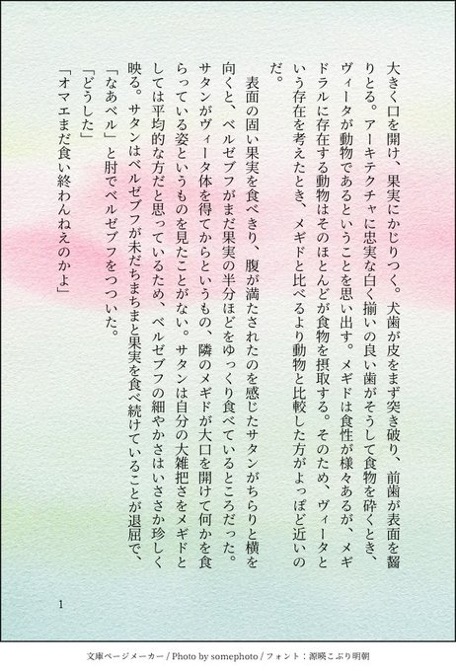 大きく口を開け、果実にかじりつく。犬歯が皮をまず突き破り、前歯が表面を齧
りとる。アーキテクチャに忠実な白く揃いの良い歯がそうして食物を砕くとき、
ヴィータが動物であるということを思い出す。メギドは食性が様々あるが、メギ
ドラルに存在する動物はそのほとんどが食物を摂取する。そのため、ヴィータと
いう存在を考えたとき、メギドと比べるより動物と比較した方がよっぽど近いの
だ。
　表面の固い果実を食べきり、腹が満たされたのを感じたサタンがちらりと横を
向くと、ベルゼブフがまだ果実の半分ほどをゆっくり食べているところだった。
サタンがヴィータ体を得てからというもの、隣のメギドが大口を開けて何かを食
らっている姿というものを見たことがない。サタンは自分の大雑把さをメギドと
しては平均的な方だと思っているため、ベルゼブフの細やかさはいささか珍しく
映る。サタンはベルゼブフが未だちまちまと果実を食べ続けていることが退屈で、
「なあベル」と肘でベルゼブフをつついた。
「どうした」
「オマエまだ食い終わんねえのかよ」
1
文庫ページメーカー / Photo by somephoto / フォント：源暎こぶり明朝